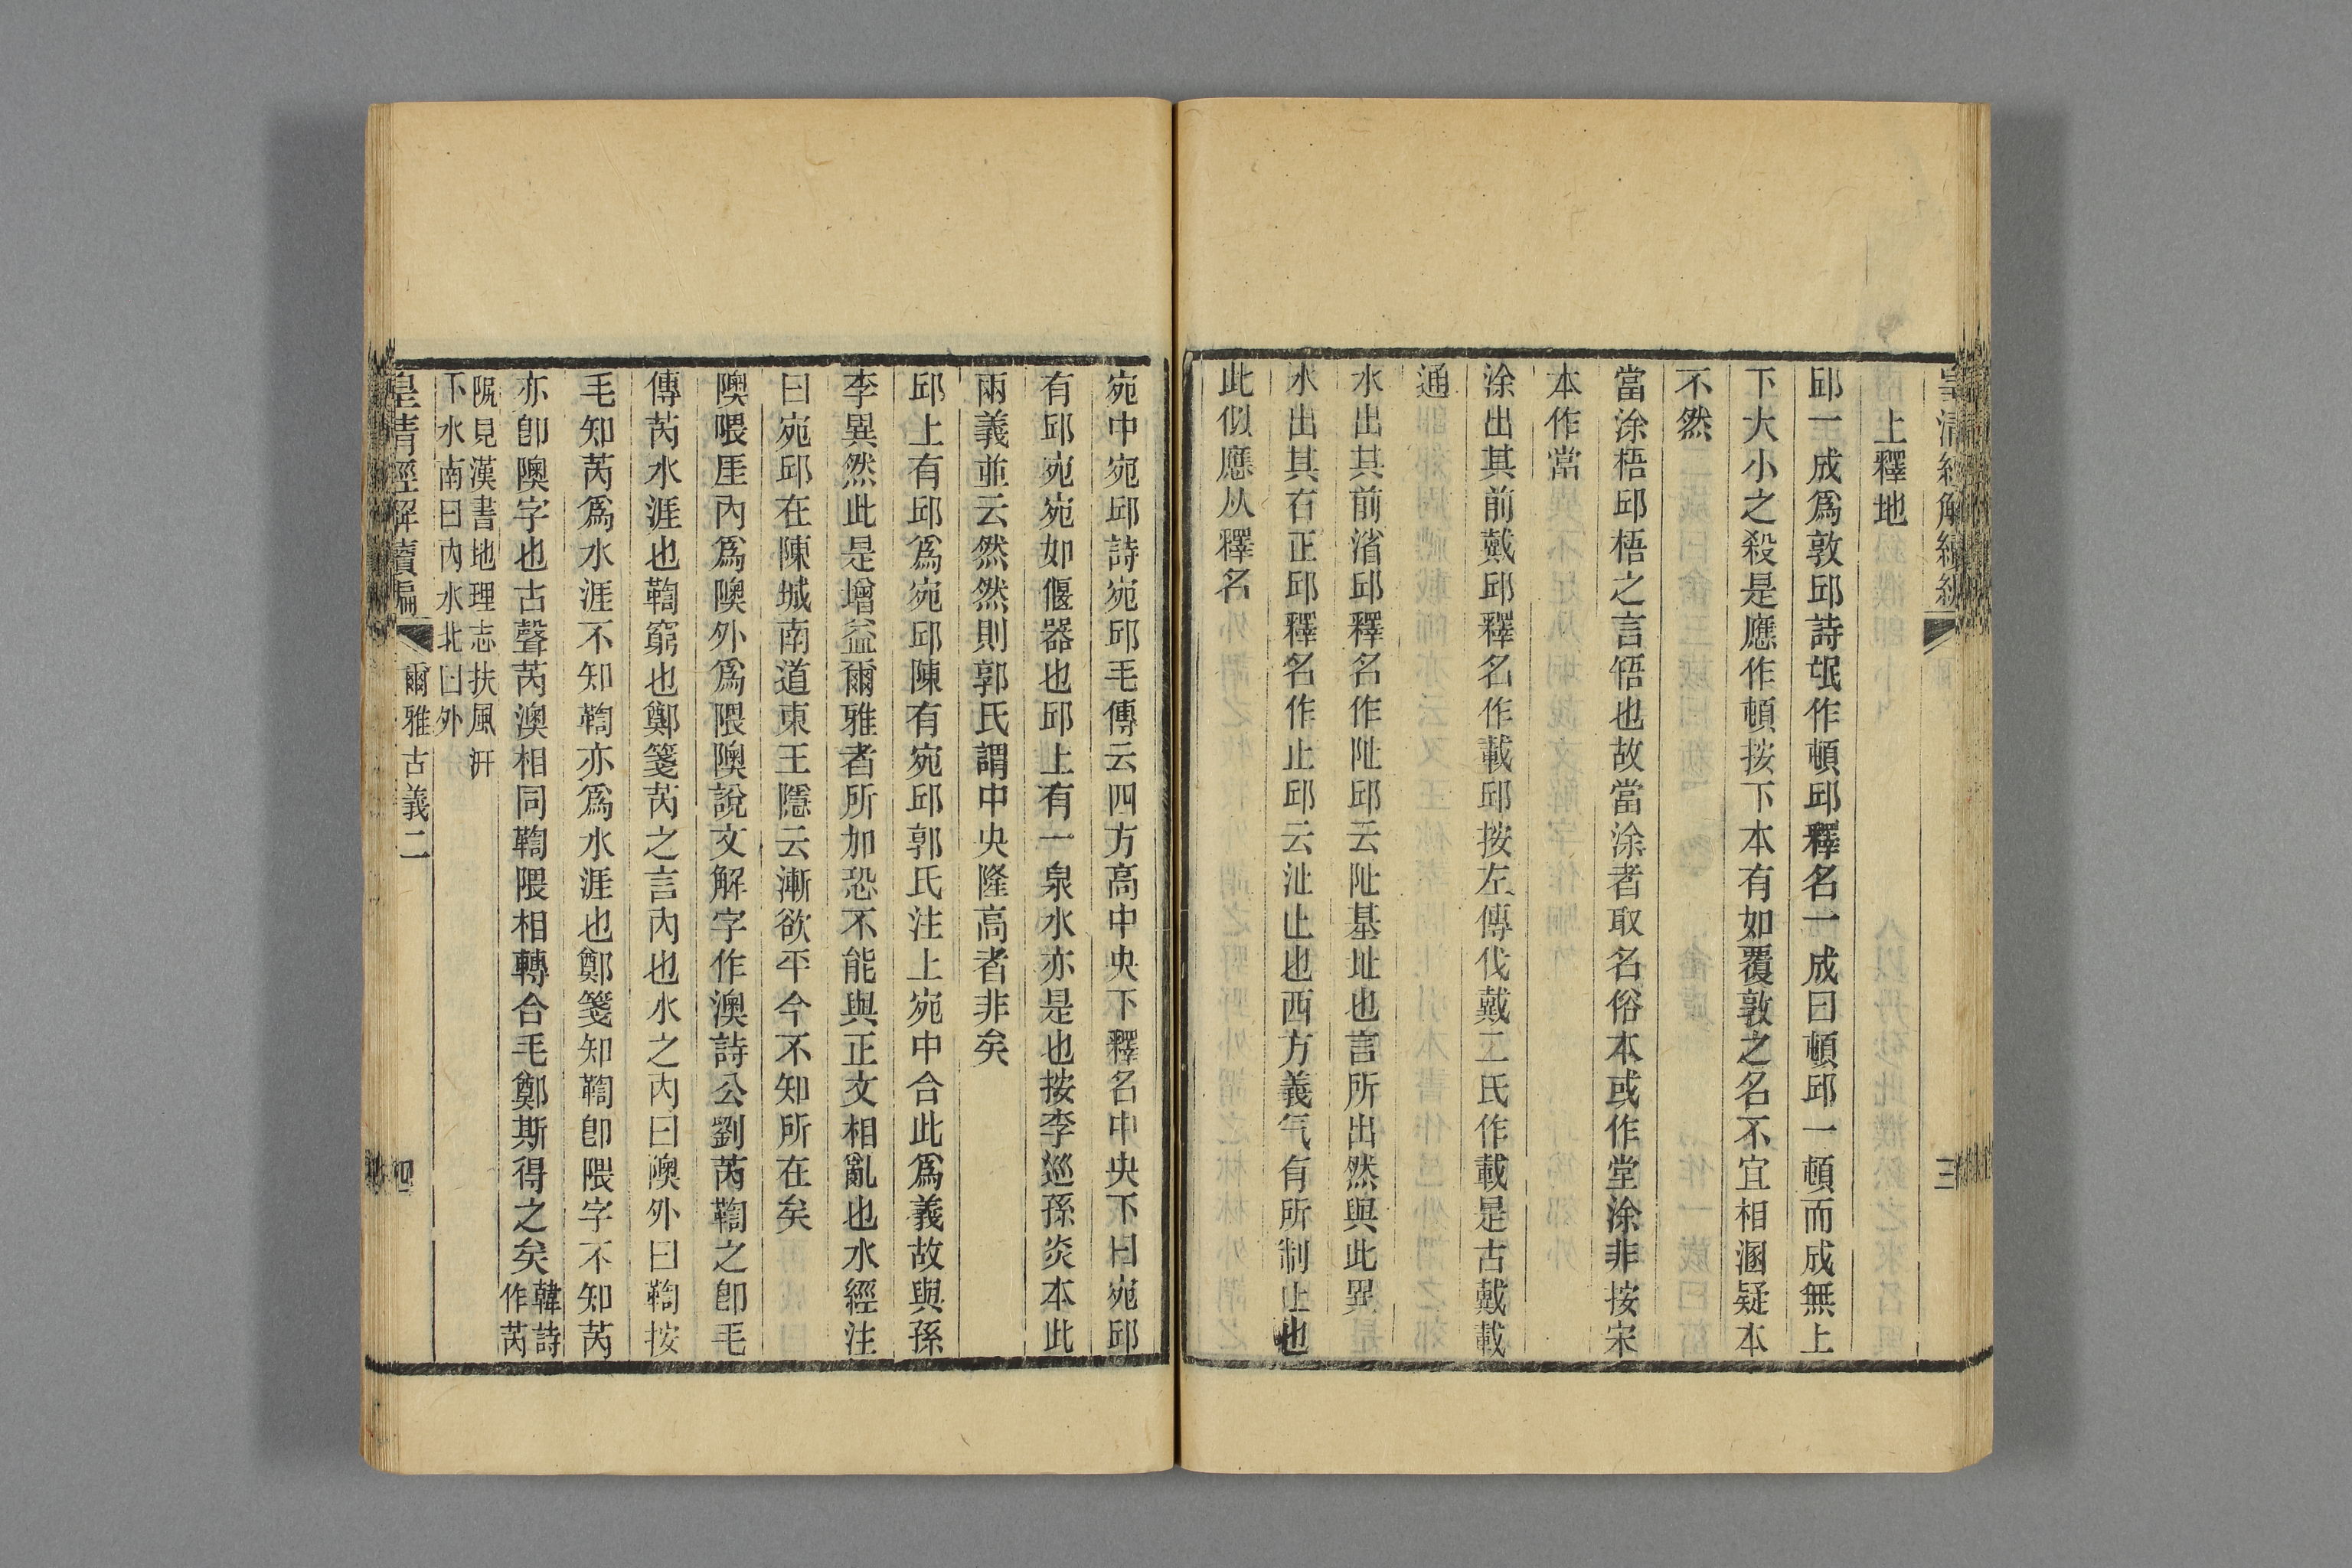 上釋地
邱一成爲敦邱詩氓作頓邱釋名一成曰頓邱一頓而成無上
下大小之殺是應作頓按下本有如覆敦之名不宜相溷疑本
不然
當涂梧邱梧之言啎也故當涂者取名俗本或作堂涂非按宋
本作當
涂出其前戴邱釋名作載邱按左傳伐戴二氏作載是古戴載
通
水出其前渻邱釋名作阯邱云阯基址也言所出然與此異
水出其右正邱釋名作止邱云沚止也西方義气有所制止也
此似應从釋名
宛中宛邱詩宛邱毛傳云四方高中央下釋名中央下曰宛邱
有邱宛宛如偃器也邱上有一泉水亦是也按李巡孫炎本此
兩義並云然然則郭氏謂中央隆高者非矣
邱上有邱爲宛邱陳有宛邱郭氏注上宛中合此爲義故與孫
李異然此是增益爾雅者所加恐不能與正文相亂也水經注
曰宛邱在陳城南道東王隱云漸欲平今不知所在矣
隩隈厓內爲隩外爲隈隩說文解字作澳詩公劉芮鞫之卽毛
傳芮水涯也鞫窮也鄭箋芮之言內也水之內曰澳外曰鞫按
毛知芮爲水涯不知鞫亦爲水涯也鄭箋知鞫卽隈字不知芮
亦卽隩字也古聲芮澳相同鞫隈相轉合毛鄭斯得之矣韓詩作芮
阮見漢書地理志扶風汧
下水南曰內水北曰外
皇清經解續編 爾雅古義二 四